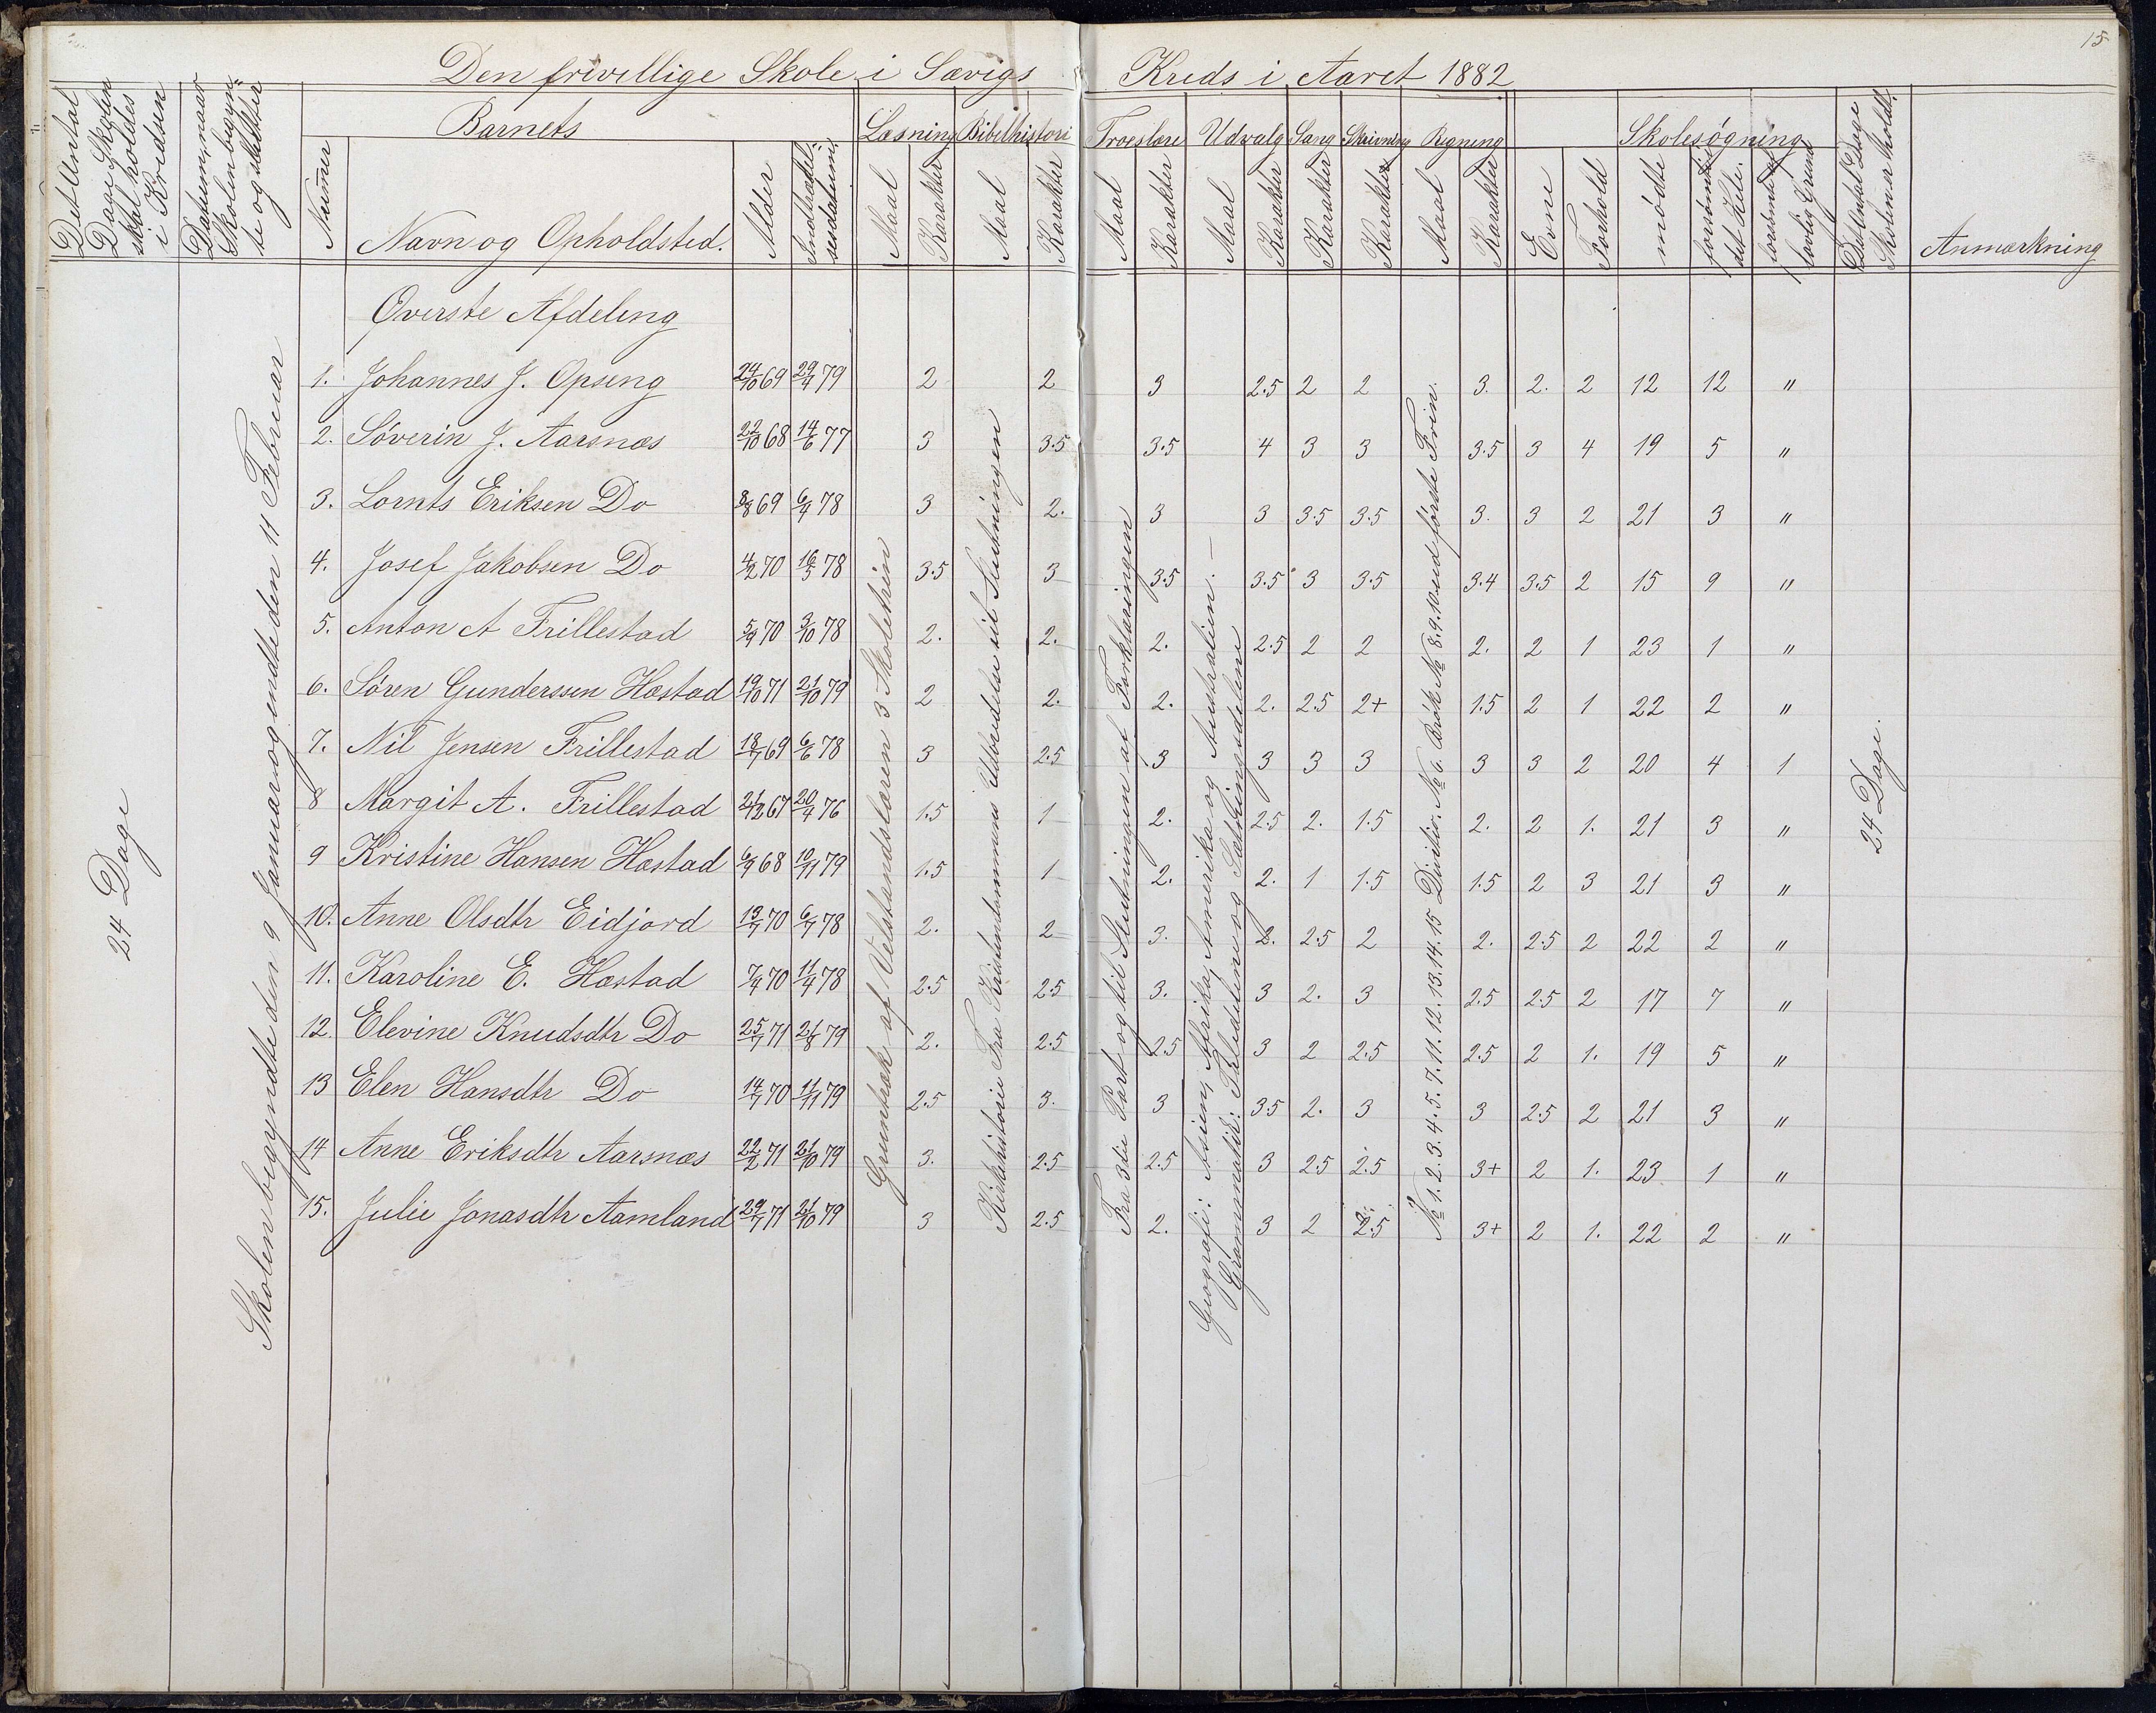 15
Den frivillige Skole i Sævigs Kreds i Aaret 1882
Det Antal Dage Skolen skal holdes i Kredsen
Datum, naar Skolen begyndte og sluttedes
Barnets
Læsning Bibelhistori Troeslære Udvalg Sang Skrivning Regning Skolesøgning
Numer Navn og Opholdsted. Alder Indtrædelsesdatum Maal Karakter Maal Karakter Maal Karakter Maal Karakter Karakter Karakter Maal Karakter Evne Forhold mødte forsømte det Hele. forsømt af lovlig Grund Det Antal Dage Skolen er holdt. Anmærkning
24 Dage
Skolen begyndte den 9 Januar og endte den 11 Februar
Øverste Afdeling
1. Johannes J. Opseng 24/10 69 29/4 79 2 2 3 2.5 2 2 3. 2. 2 12 12 "
2. Søverin J. Aarsnæs 22/10 68 14/6 77 3 3.5 3.5 4 3 3 3.5 3 4 19 5 "
3. Lornts Eriksen Do 8/8 69 6/4 78 3 2. 3 3 3.5 3.5 3. 3 2 21 3 "
4. Josef Jakobsen Do 4/2 70 16/5 78 3.5 3 3.5 3.5 3 3.5 3.4 3.5 2 15 9 "
5. Anton A Frillestad 5/9 70 3/10 78 2. 2. 2. 2.5 2 2 2. 2 1 23 1 "
6. Søren Gunderssen Hæstad 19/10 71 21/10 79 2 2. 2. 2. 2.5 2+ 1.5 2 1 22 2 "
7. Nil Jensen Frillestad 18/7 69 6/6 78 3 2.5 3 3 3 3 3 3 2 20 4 1
8 Margit A. Frillestad 21/12 67 20/4 76 1.5 1 2. 2.5 2. 1.5 2. 2 1. 21 3 "
9 Kristine Hansen Hæstad 6/9 68 10/11 79 1.5 1 2. 2. 1 1.5 1.5 2 3 21 3 "
10. Anne Olsdtr Eidjord 13/7 70 6/7 78 2. 2 3. 2. 2.5 2 2. 2.5 2 22 2 "
11. Karoline E. Hæstad 7/4 70 11/4 78 2.5 2.5 3. 3 2. 3 2.5 2.5 2 17 7 "
12. Elevine Knudsdtr Do 25/7 71 21/8 79 2. 2.5 2.5 3 2 2.5 2.5 2 1. 19 5 "
13 Elen Hansdtr Do 14/7 70 11/11 79 2.5 3. 3 3.5 2. 3 3 2.5 2 21 3 "
14 Anne Eriksdtr Aarsnæs 22/2 71 21/10 79 3. 2.5 2.5 3 2.5 2.5 3+ 2 1. 23 1 "
15. Julie Jonasdtr Aamland 29/7 71 21/10 79 3 2.5 2. 3 2 2.5 3+ 2 1. 22 2 "
Grundtræk af Velstandslæren 3 Skoletrin
Kirkehistorie Fra Kristendommens Udbredelse til Slutningen
Fra 3die Part og til Slutningen af Forklaringen
Geografi: Asien, Afrika, Amerika og Australien. —
Grammatik: Taledelene og Sætningsdelene
No 1. 2. 3. 4. 5. 7. 11. 12. 13. 14. 15 Divitio. No 6. Brøk No 8. 9. 10. ud første Trin.
24 Dage.